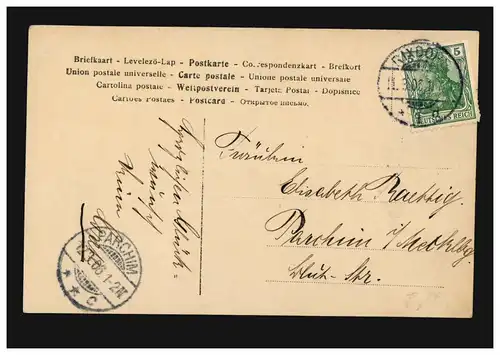 Briefkaart - Levelező-Lap - Postkarte - Correspondenzkart - Brefkort
Union postale universelle - Carte postale - Unione postale universale
Cartolina postale - Weltpostverein - Tarjeta Postal - Dopisnice
Cartões Postaes - Postcard - Открытое письмо.
RIXDORF
5
DEUTSCHES REICH
Fräulein
Elisabeth Raettig
Parchim i/Mecklbg
Str.
Herzlichen Glück-
wunsch
PARCHIM
1-2N
* * c